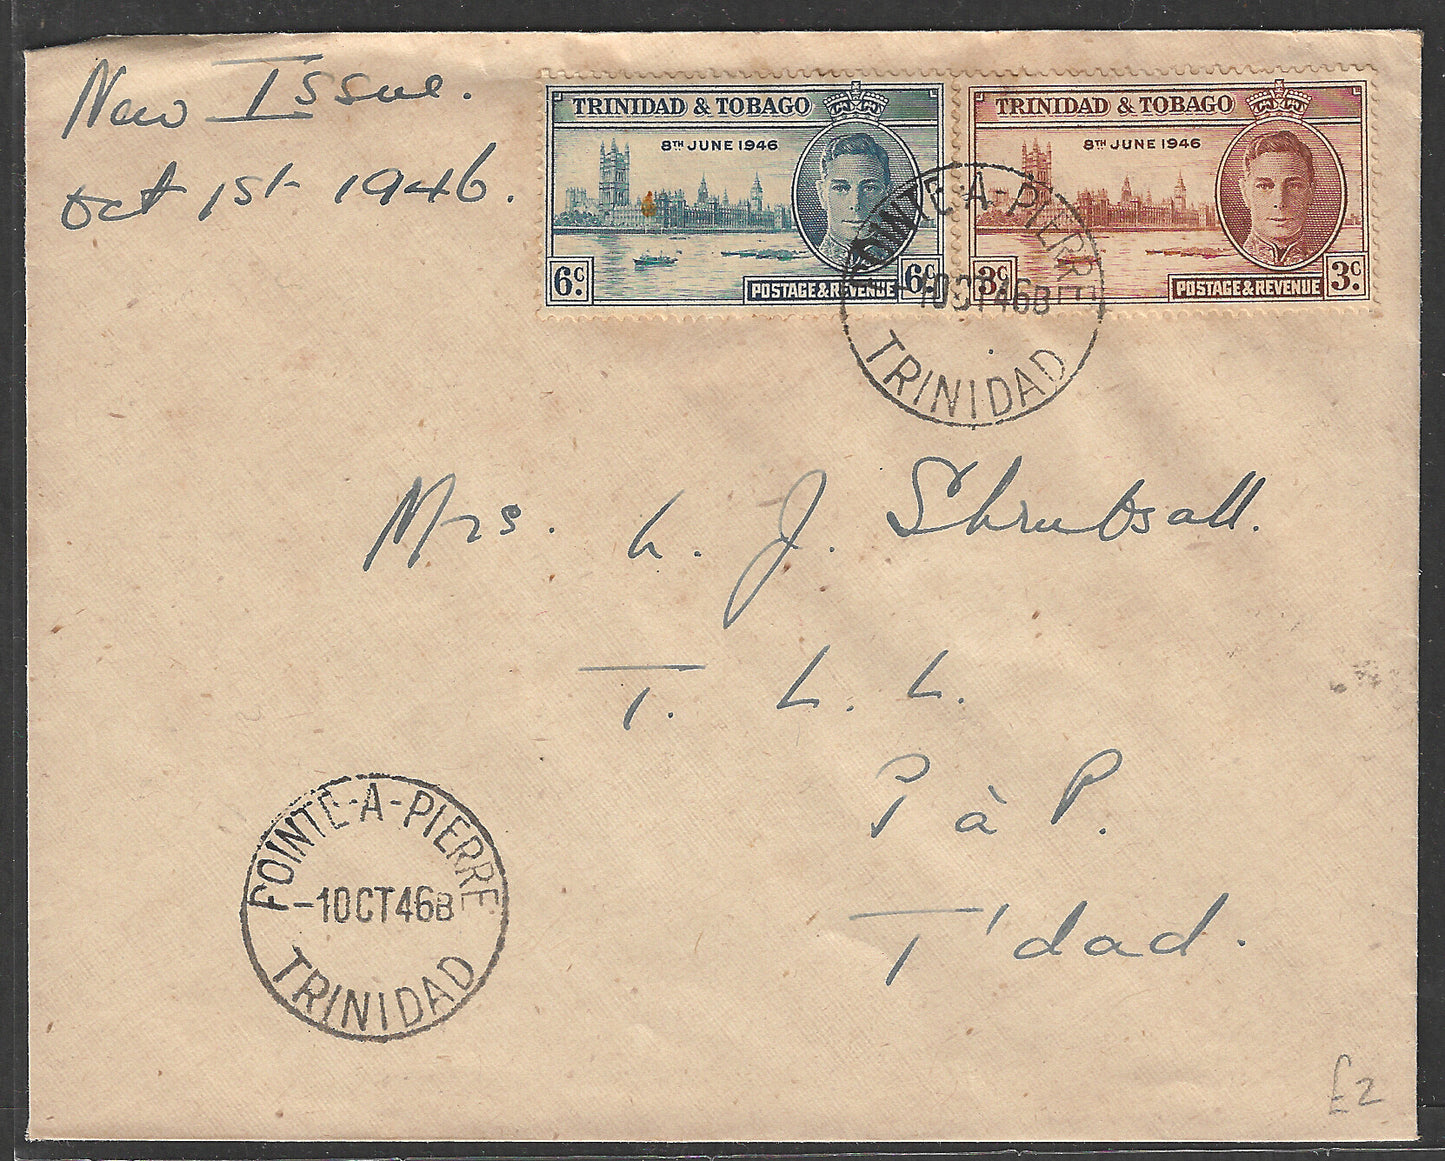 New Issue.
Oct 1st 1946.
TRINIDAD & TOBAGO
8TH JUNE 1946
6c.
POSTAGE & REVENUE
6c.
TRINIDAD & TOBAGO
8TH JUNE 1946
3c.
POSTAGE & REVENUE
3c.
POINTE-A-PIERRE
-1OCT46B
TRINIDAD
Mrs. L. J. Shrubsall.
T. L. L.
P à P.
T'dad.
POINTE-A-PIERRE
-1OCT46B
TRINIDAD
£2